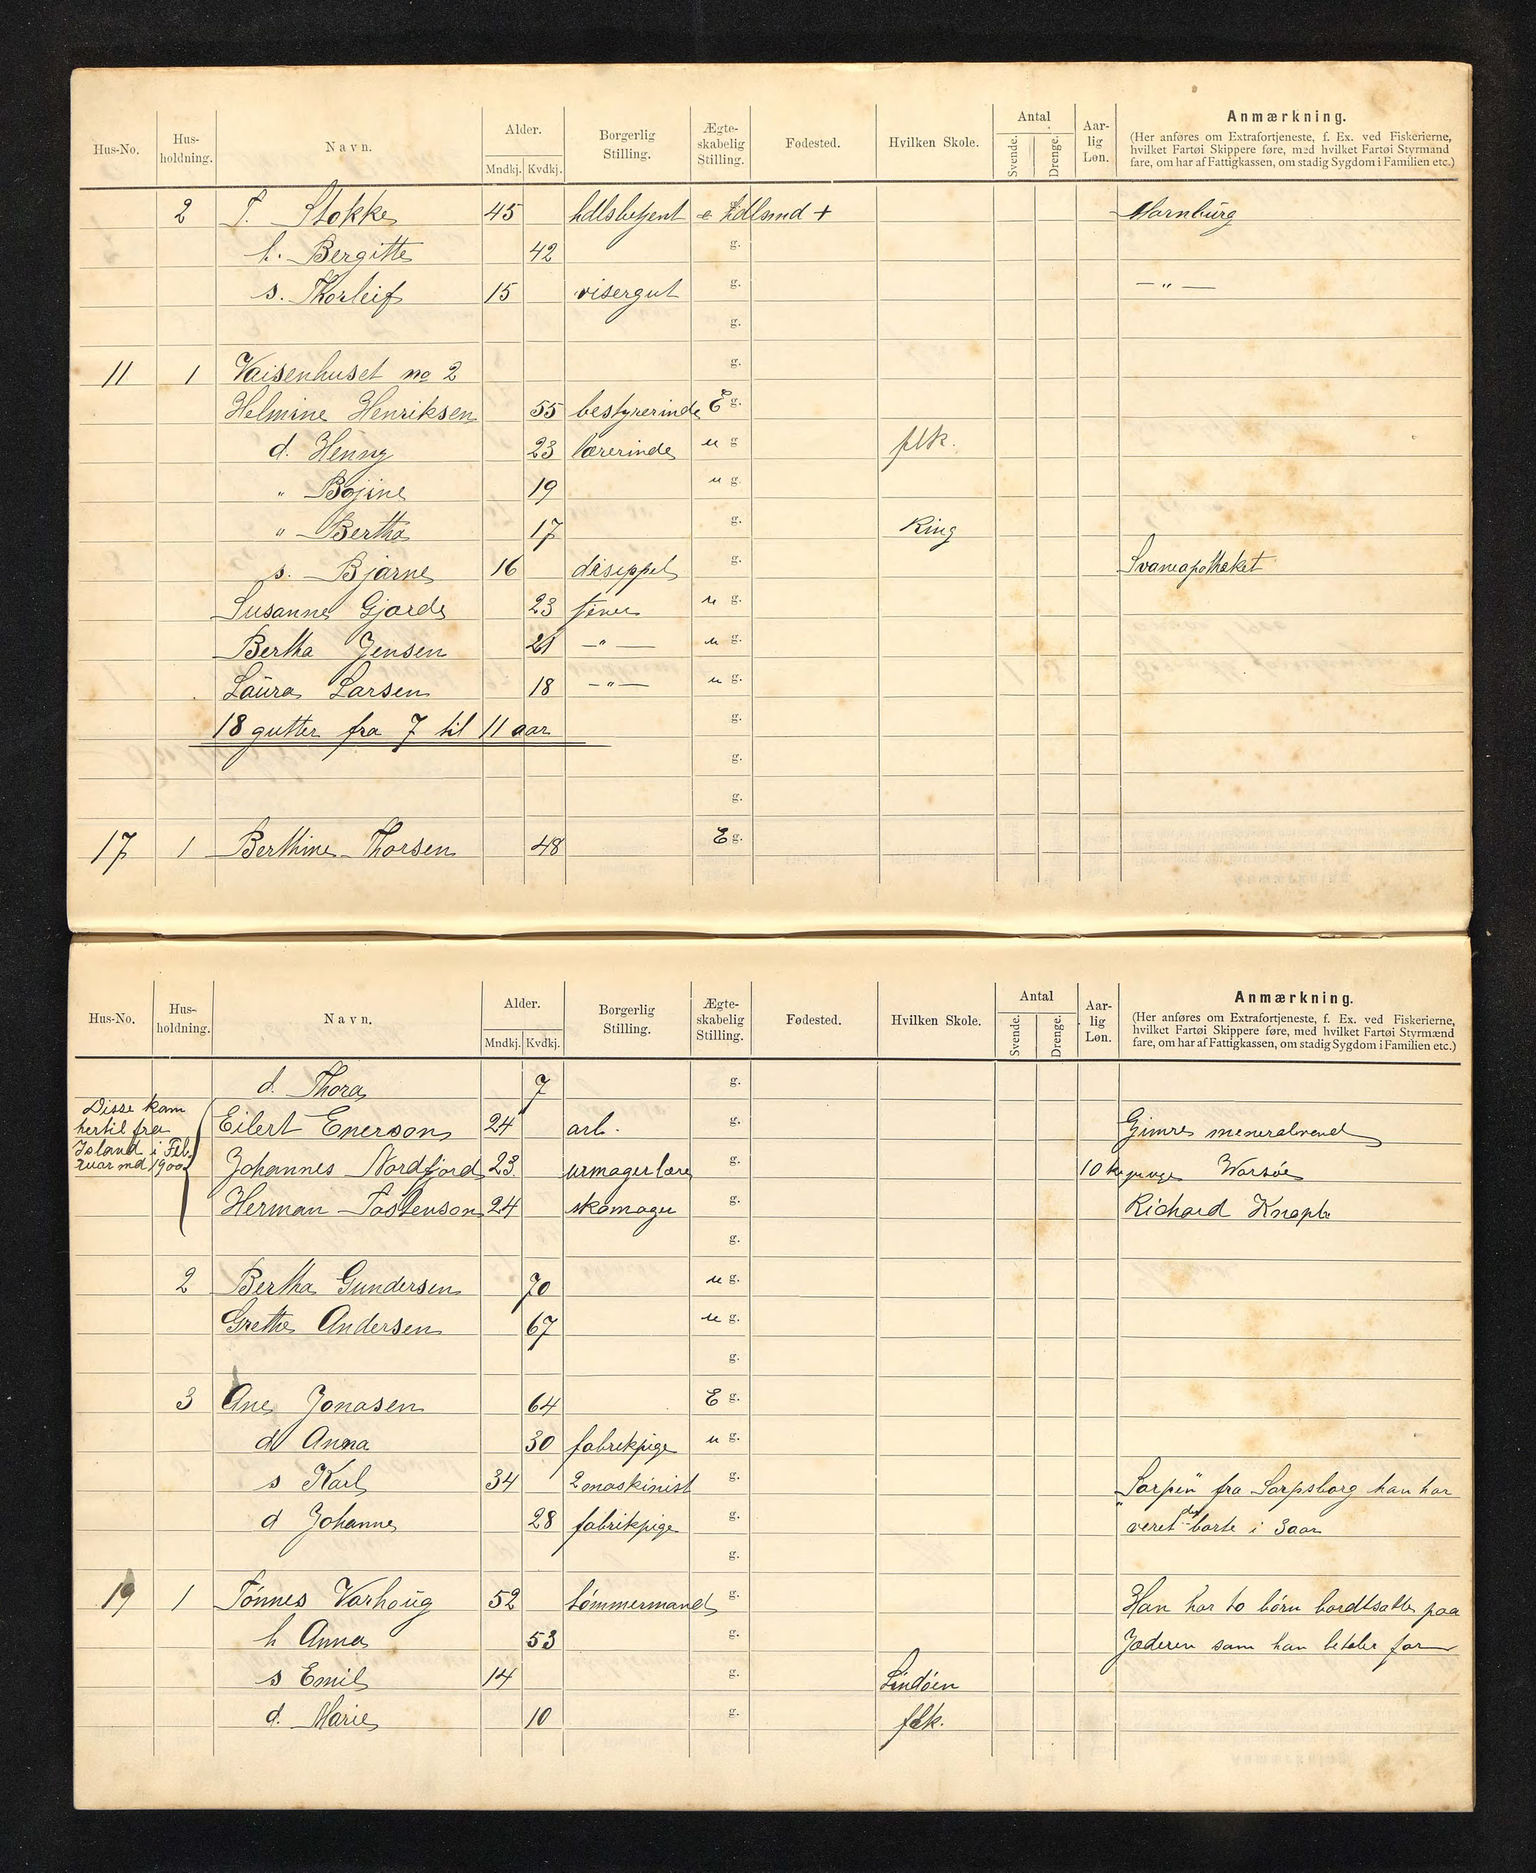 Hus-No. Hus-holdning. Navn. Alder. Mndkj. Kvdkj. Borgerlig Stilling. Ægte-skabelig Stilling. Fødested. Hvilken Skole. Antal Svende. Drenge. Aar-lig Løn. Anmærkning.
(Her anføres om Extrafortjeneste, f. Ex. ved Fiskerierne,
hvilket Fartøi Skippere føre, med hvilket Fartøi Styrmænd
fare, om har af Fattigkassen, om stadig Sygdom i Familien etc.)
2 T. Stokke 45 hdlsbetjent e hdlsmd + g. Marnburg
h. Bergitte 42 g.
s. Thorleif 15 visergut g. — " —
g.
11 1 Vaisenhuset no 2 g.
Helmine Henriksen 55 bestyrerinde E g.
d. Henny 23 lærerinde u g flk.
" Bojine 19 u g.
" Bertha 17 g. Ring
s. Bjarne 16 disippel g. Svaneapotheket
Susanne Gjorde 23 tener u g.
Bertha Jensen 21 — " — u g.
Laura Larsen 18 — " — u g.
18 gutter fra 7 til 11 aar g.
g.
g.
17 1 Berthine Thorsen 48 E g.
Hus-No. Hus-holdning. Navn. Alder. Mndkj. Kvdkj. Borgerlig Stilling. Ægte-skabelig Stilling. Fødested. Hvilken Skole. Antal Svende. Drenge. Aar-lig Løn. Anmærkning.
(Her anføres om Extrafortjeneste, f. Ex. ved Fiskerierne,
hvilket Fartøi Skippere føre, med hvilket Fartøi Styrmænd
fare, om har af Fattigkassen, om stadig Sygdom i Familien etc.)
d. Thora 7 g.
Disse kom
hertil fra
Island i Feb.
ruar md 1900
Eilert Enerson 24 arb. g. Gimre mineralvend
Johannes Nordfjord 23 urmagerlære g. 10 kr Warsøe
Herman Tostenson 24 skomager g. Richard Knap
g.
2 Bertha Gundersen 70 u g.
Grethe Andersen 67 u g.
g.
3 Ane Jonasen 64 E g.
d Anna 30 fabrikpige u g.
s Karl 34 2 maskinist g. "Sarpen" fra Sarpsborg han har
d Johanne 28 fabrikpige g. veret der borte i 3 aar
g.
19 1 Tønnes Varhoug 52 tømmermand g. Han har to børn bortsatte paa
h Anna 53 g. Jæderen som han betaler for
s Emil 14 g. Lindøen
d. Marie 10 g. flk.